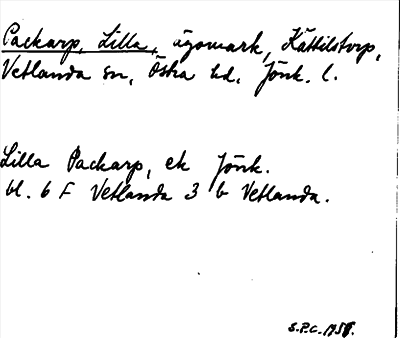 Packarp, Lilla, ägomark, Kättilstorp,
Vetlanda sn, Östra hd, Jönk. l.
Lilla Packarp, ek Jönk.
bl. 6 F Vetlanda 3 b Vetlanda.
S.P.C. 1958.